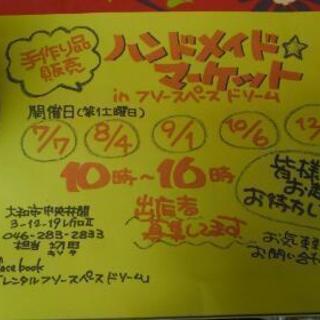 手作り品
販売
ハンドメイド☆
マーケット
in フリースペース ドリーム
開催日(第1土曜日)
7/7 8/4 9/1 10/6
10時~16時
皆様
お待ちし
出店者
募集してます
大和市中央林間
3-12-19
046-283-2833
担当
お気軽
お問い合わ
facebook
「レンタルフリースペース ドリーム」